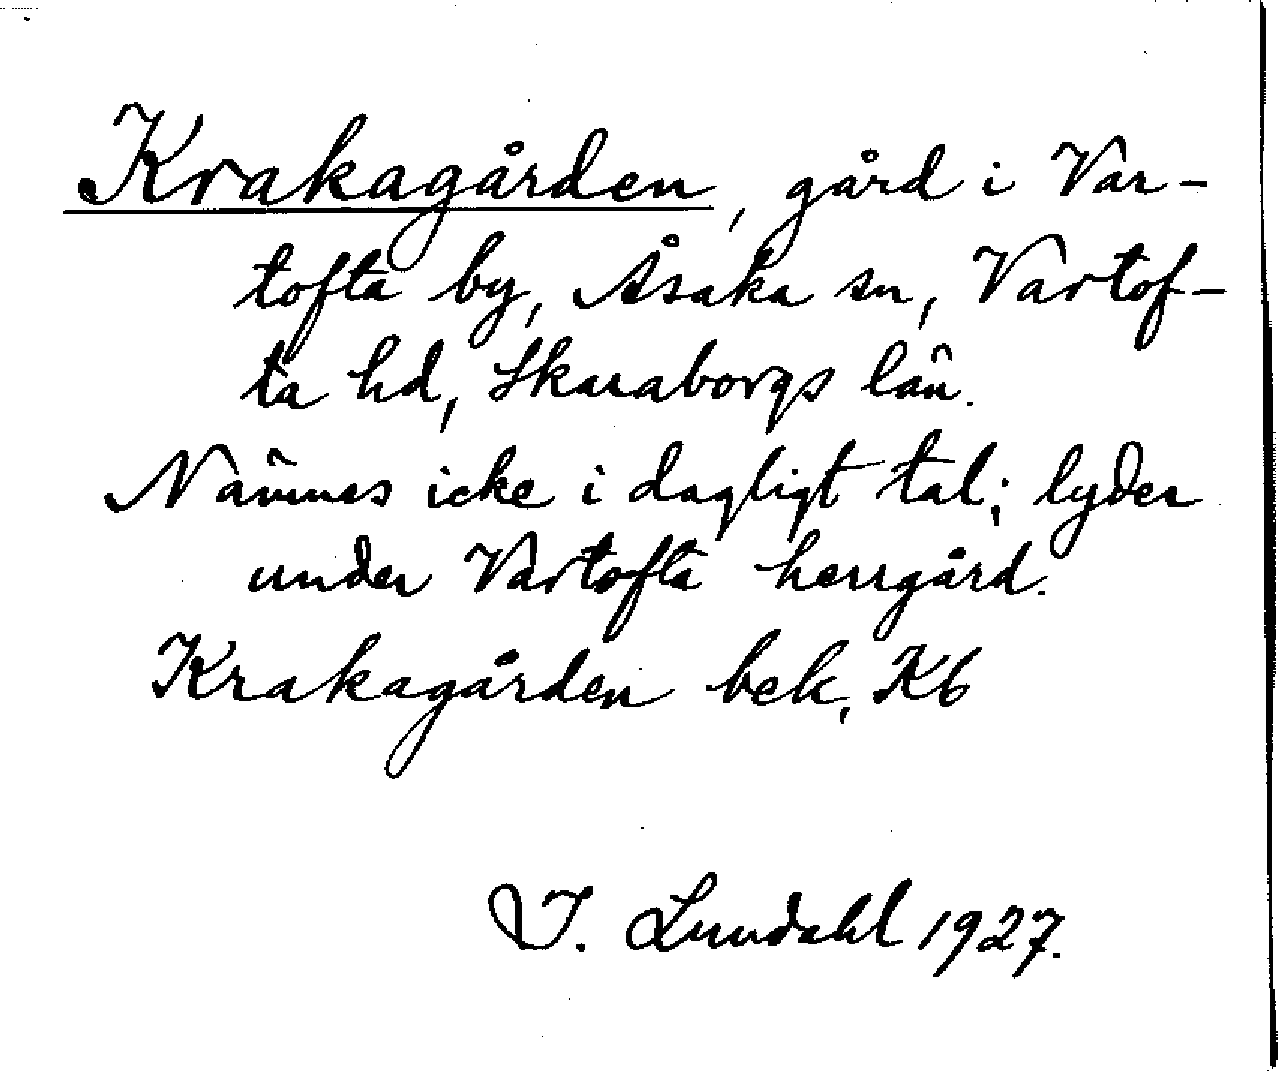 Krakagården, gård i Var-
tofta by, Åsaka sn, Vartof-
ta hd, Skaraborgs län.
Nämnes icke i dagligt tal; lyder
under Vartofta herrgård.
Krakagården bek, Kb
I. Lundahl 1927.